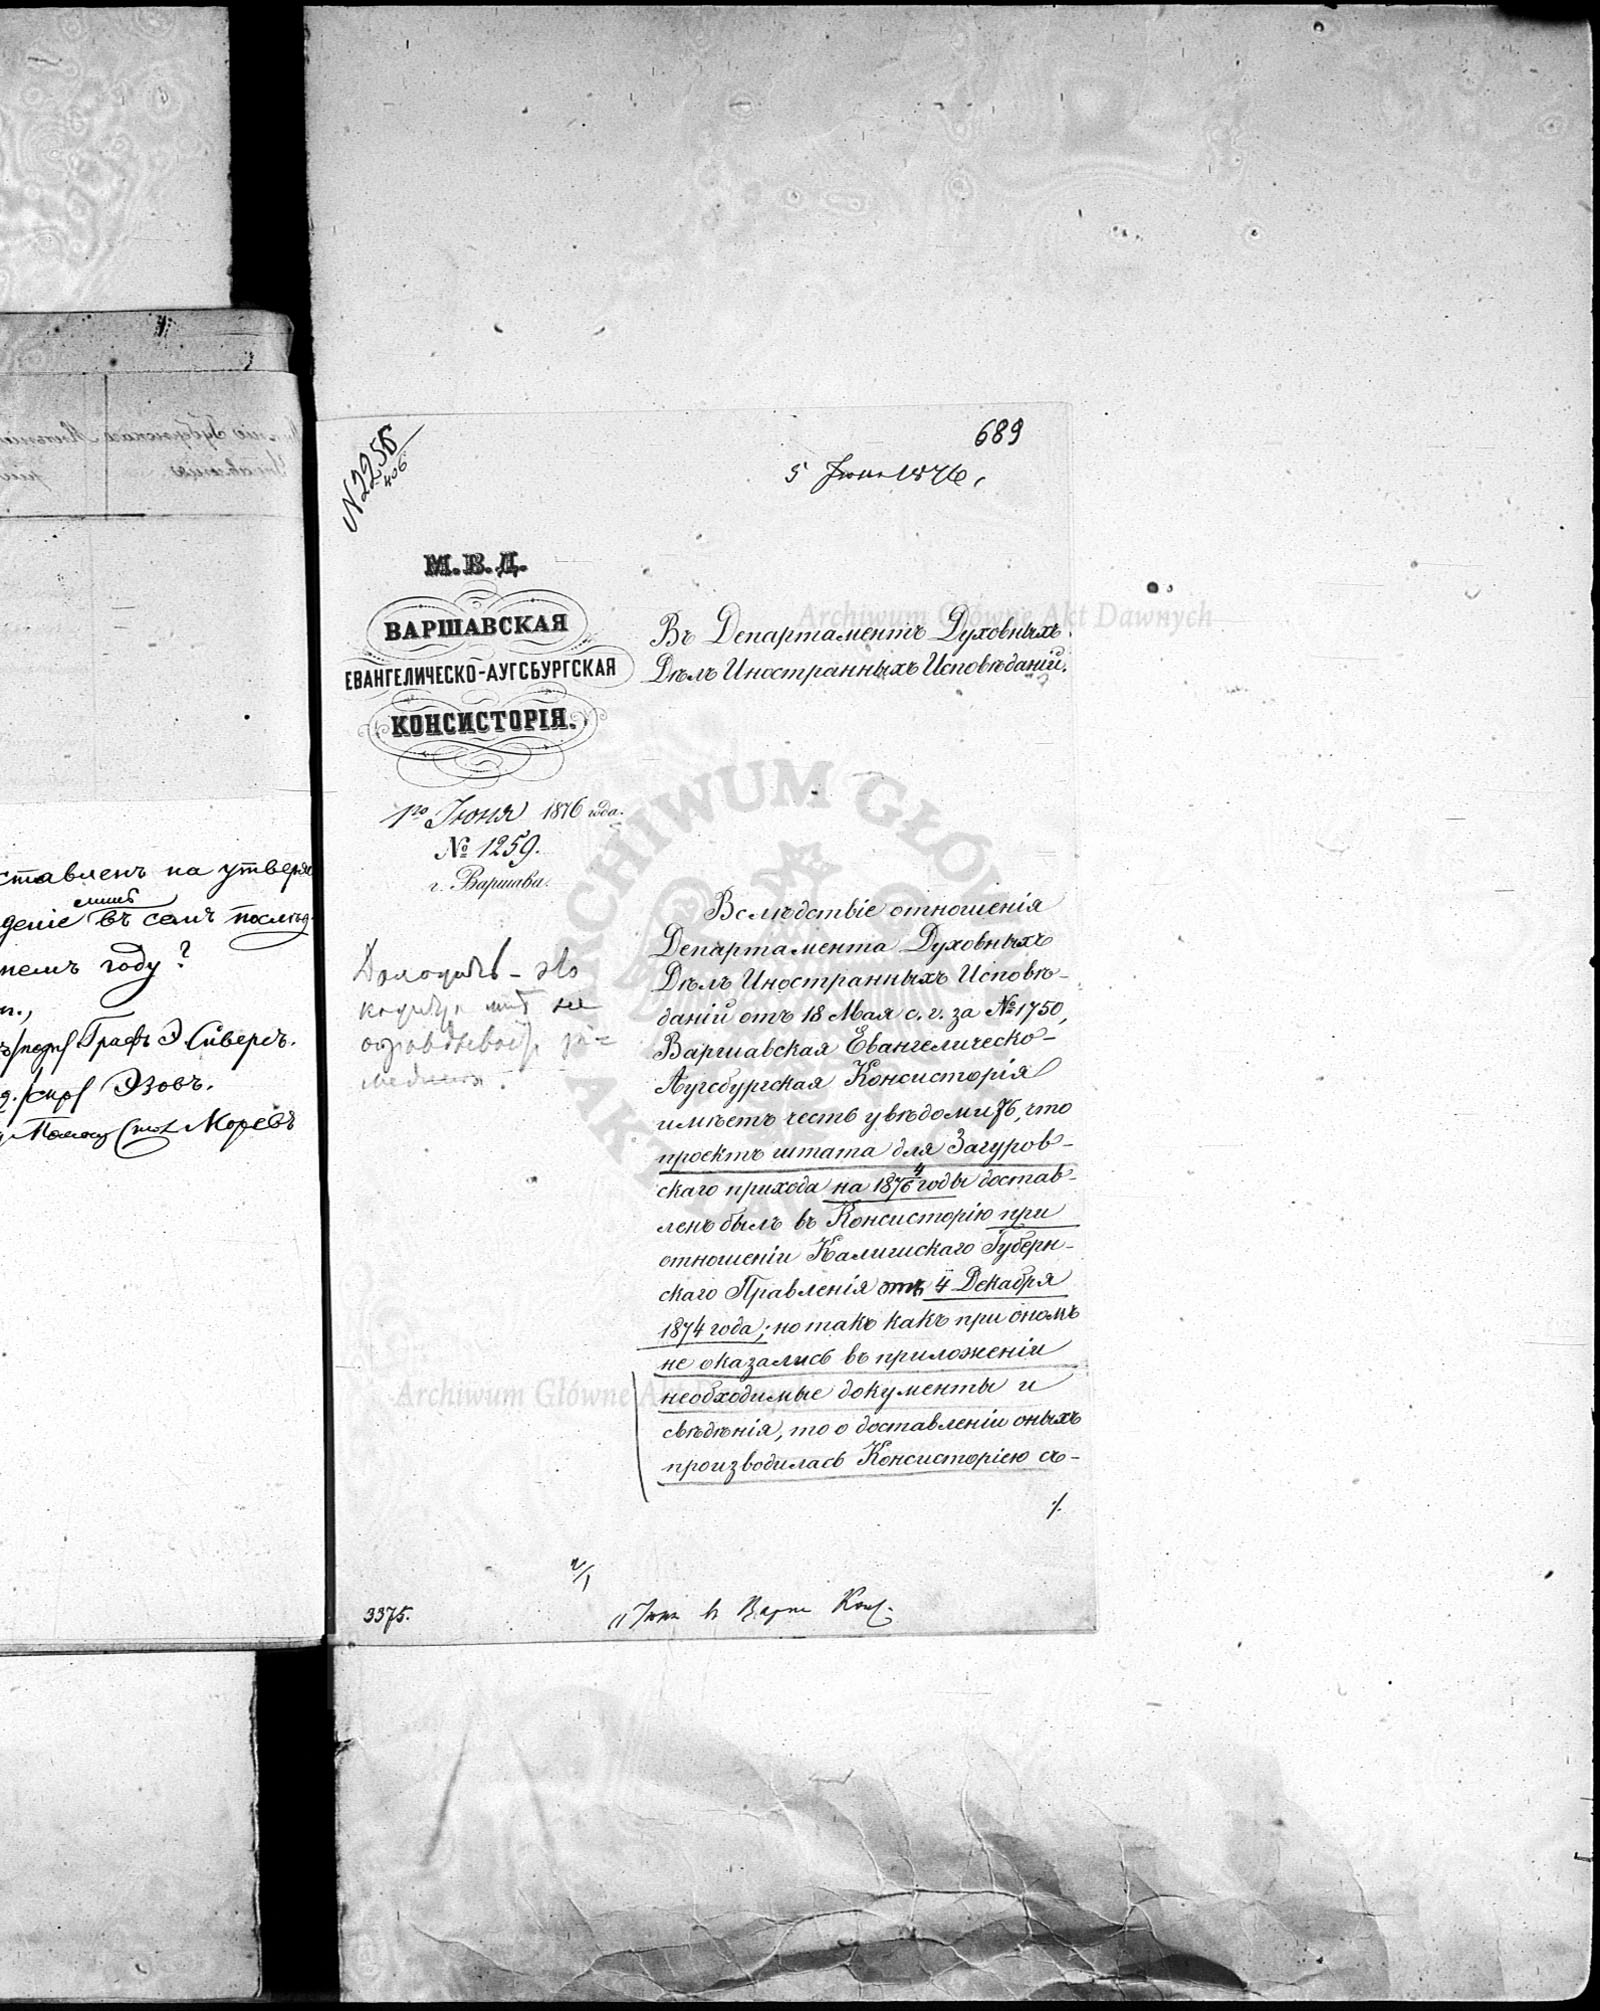 ставленъ на утверж
лишь
деніе въ семъ послѣд-
немъ году?
/подп/ Графъ Э Сиверсъ.
/скр/ Эзовъ.
Моревъ
689
N 2256
406
5 Іюня 1876,
М.В.Д.
ВАРШАВСКАЯ
ЕВАНГЕЛИЧЕСКО-АУГСБУРГСКАЯ
КОНСИСТОРІЯ.
1го Іюня 1876 года.
№ 1259.
г. Варшава.
Въ Департаментъ Духовныхъ
Дѣлъ Иностранныхъ Исповѣданій.
Доложить - это
Вслѣдствіе отношенія
Департамента Духовныхъ
Дѣлъ Иностранныхъ Исповѣ-
даній отъ 18 Мая с. г. за № 1750,
Варшавская Евангелическо-
Аугсбургская Консисторія
имѣетъ честь увѣдомить, что
проектъ штата для Загуров-
скаго прихода на 1874/6 годы достав-
ленъ былъ въ Консисторію при
отношеніи Калишскаго Губерн-
скаго Правленія отъ 4 Декабря
1874 года; но такъ какъ при ономъ
не оказались въ приложеніи
необходимые документы и
свѣдѣнія, то о доставленіи оныхъ
производилась Консисторіею съ-
./.
3375.
11 Іюня въ Варш Конс.
Archiwum Główne Akt Dawnych
ARCHIWUM GŁÓWNE AKT DAWNYCH
Archiwum Główne Akt Dawnych